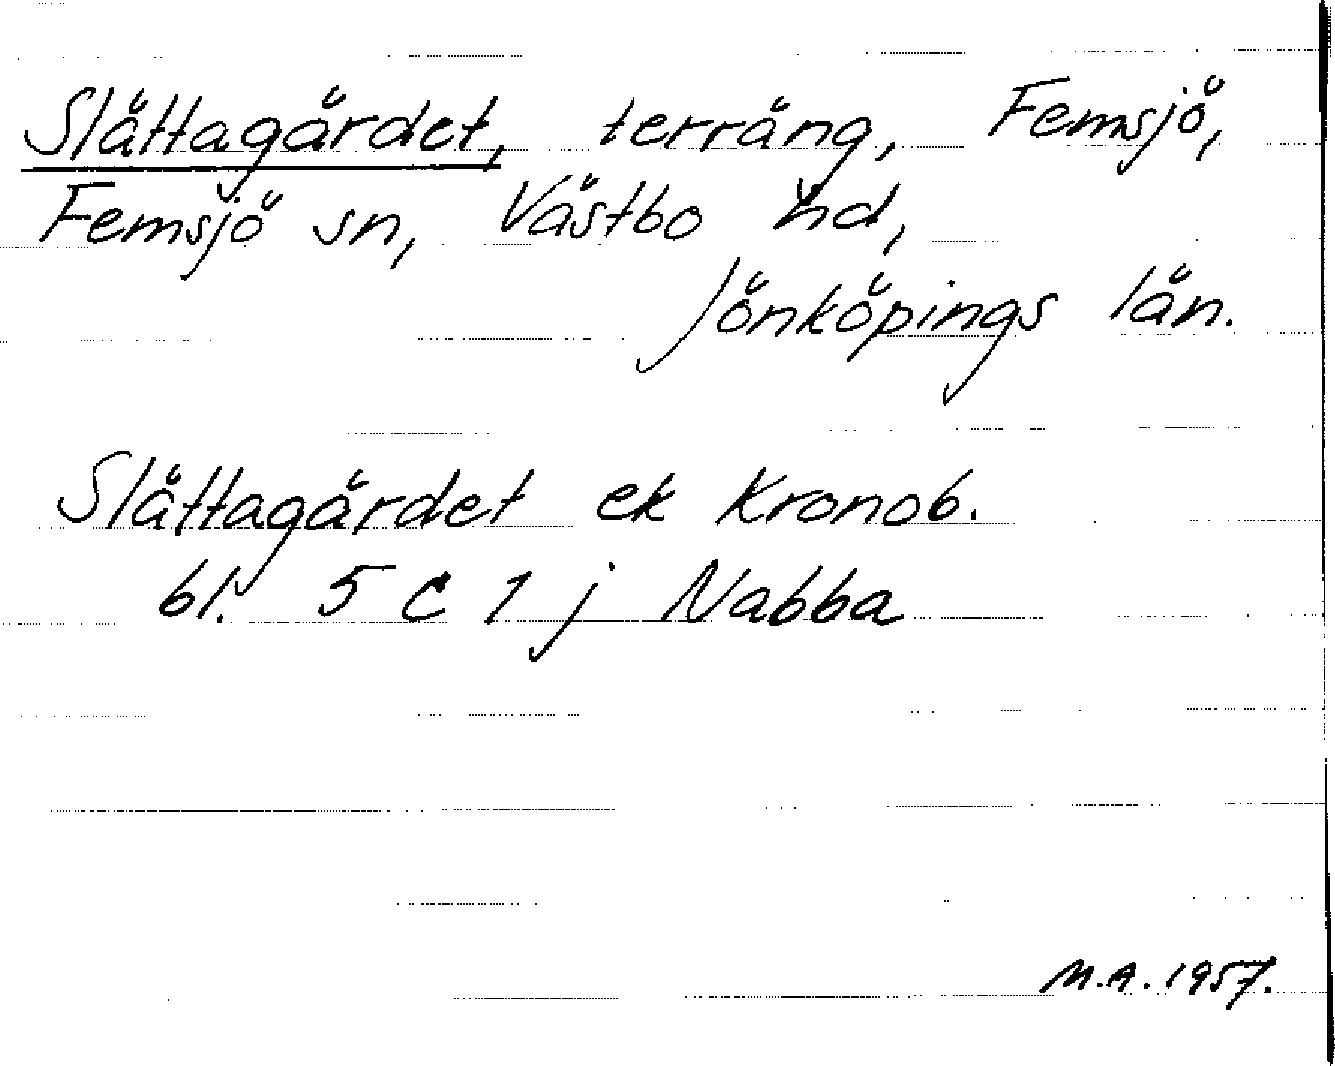 Slättagärdet, terräng, Femsjö,
Femsjö sn, Västbo hd,
Jönköpings län.
Slättagärdet ek Kronob.
bl. 5 C 1 j Nabba
M.A. 1957.